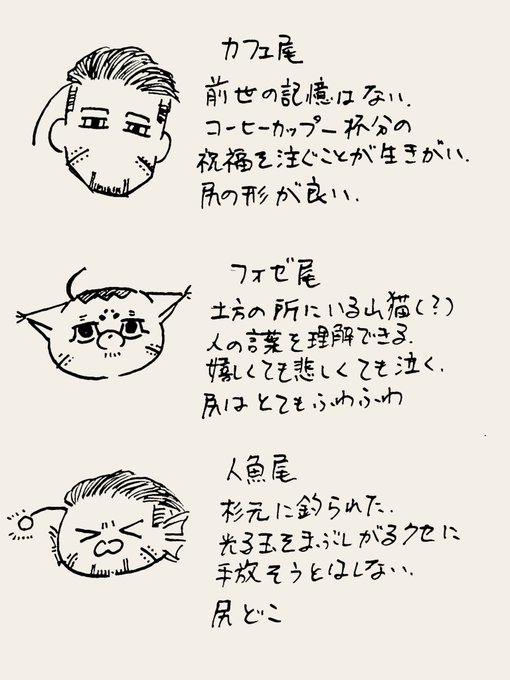 カフェ尾
前世の記憶はない.
コーヒーカップ一杯分の
祝福を注ぐことが生きがい.
尻の形が良い.
フォゼ尾
土方の所にいる山猫(?)
人の言葉を理解できる.
嬉しくても悲しくても泣く.
尻はとてもふわふわ
人魚尾
杉元に釣られた.
光る玉をまぶしがるクセに
手放そうとはしない.
尻どこ